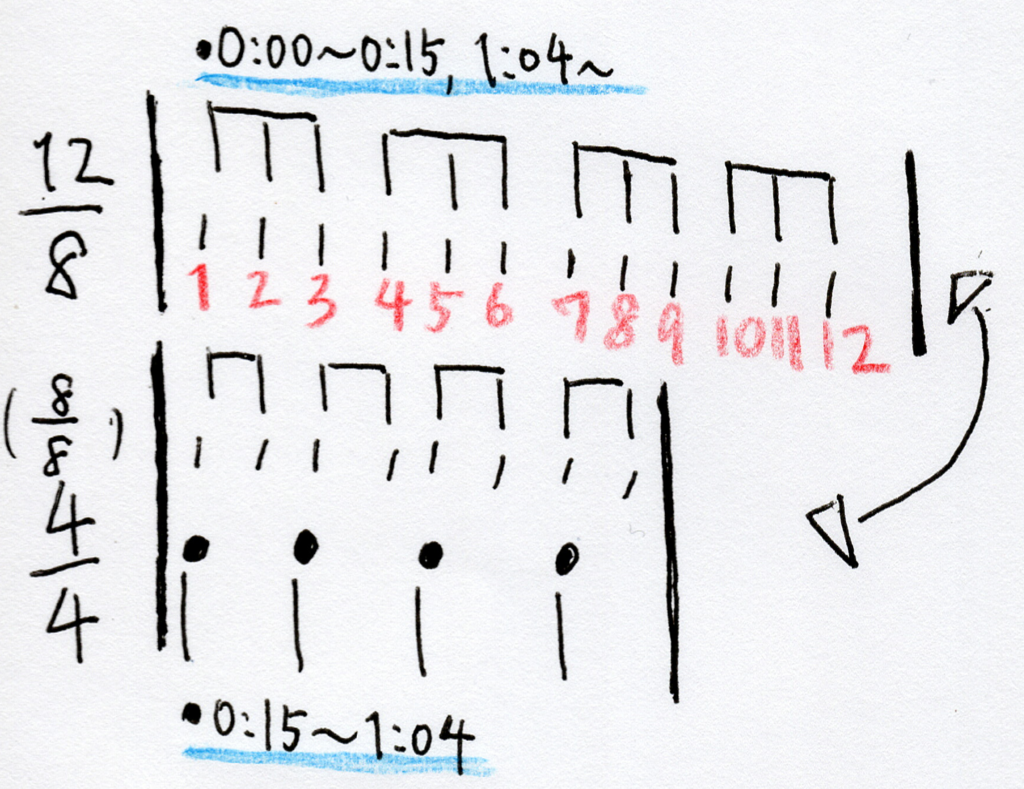 •0:00~0:15, 1:04~
12
8
1 2 3 4 5 6 7 8 9 10 11 12
(8
8)
4
4
•0:15~1:04